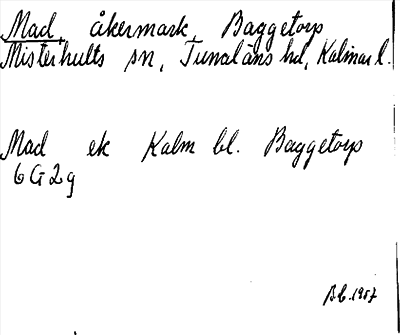 Mad, åkermark, Baggetorp
Misterhults sn, Tunaläns hd, Kalmar l.
Mad ek Kalm bl. Baggetorp
6G2g
B.b. 1957